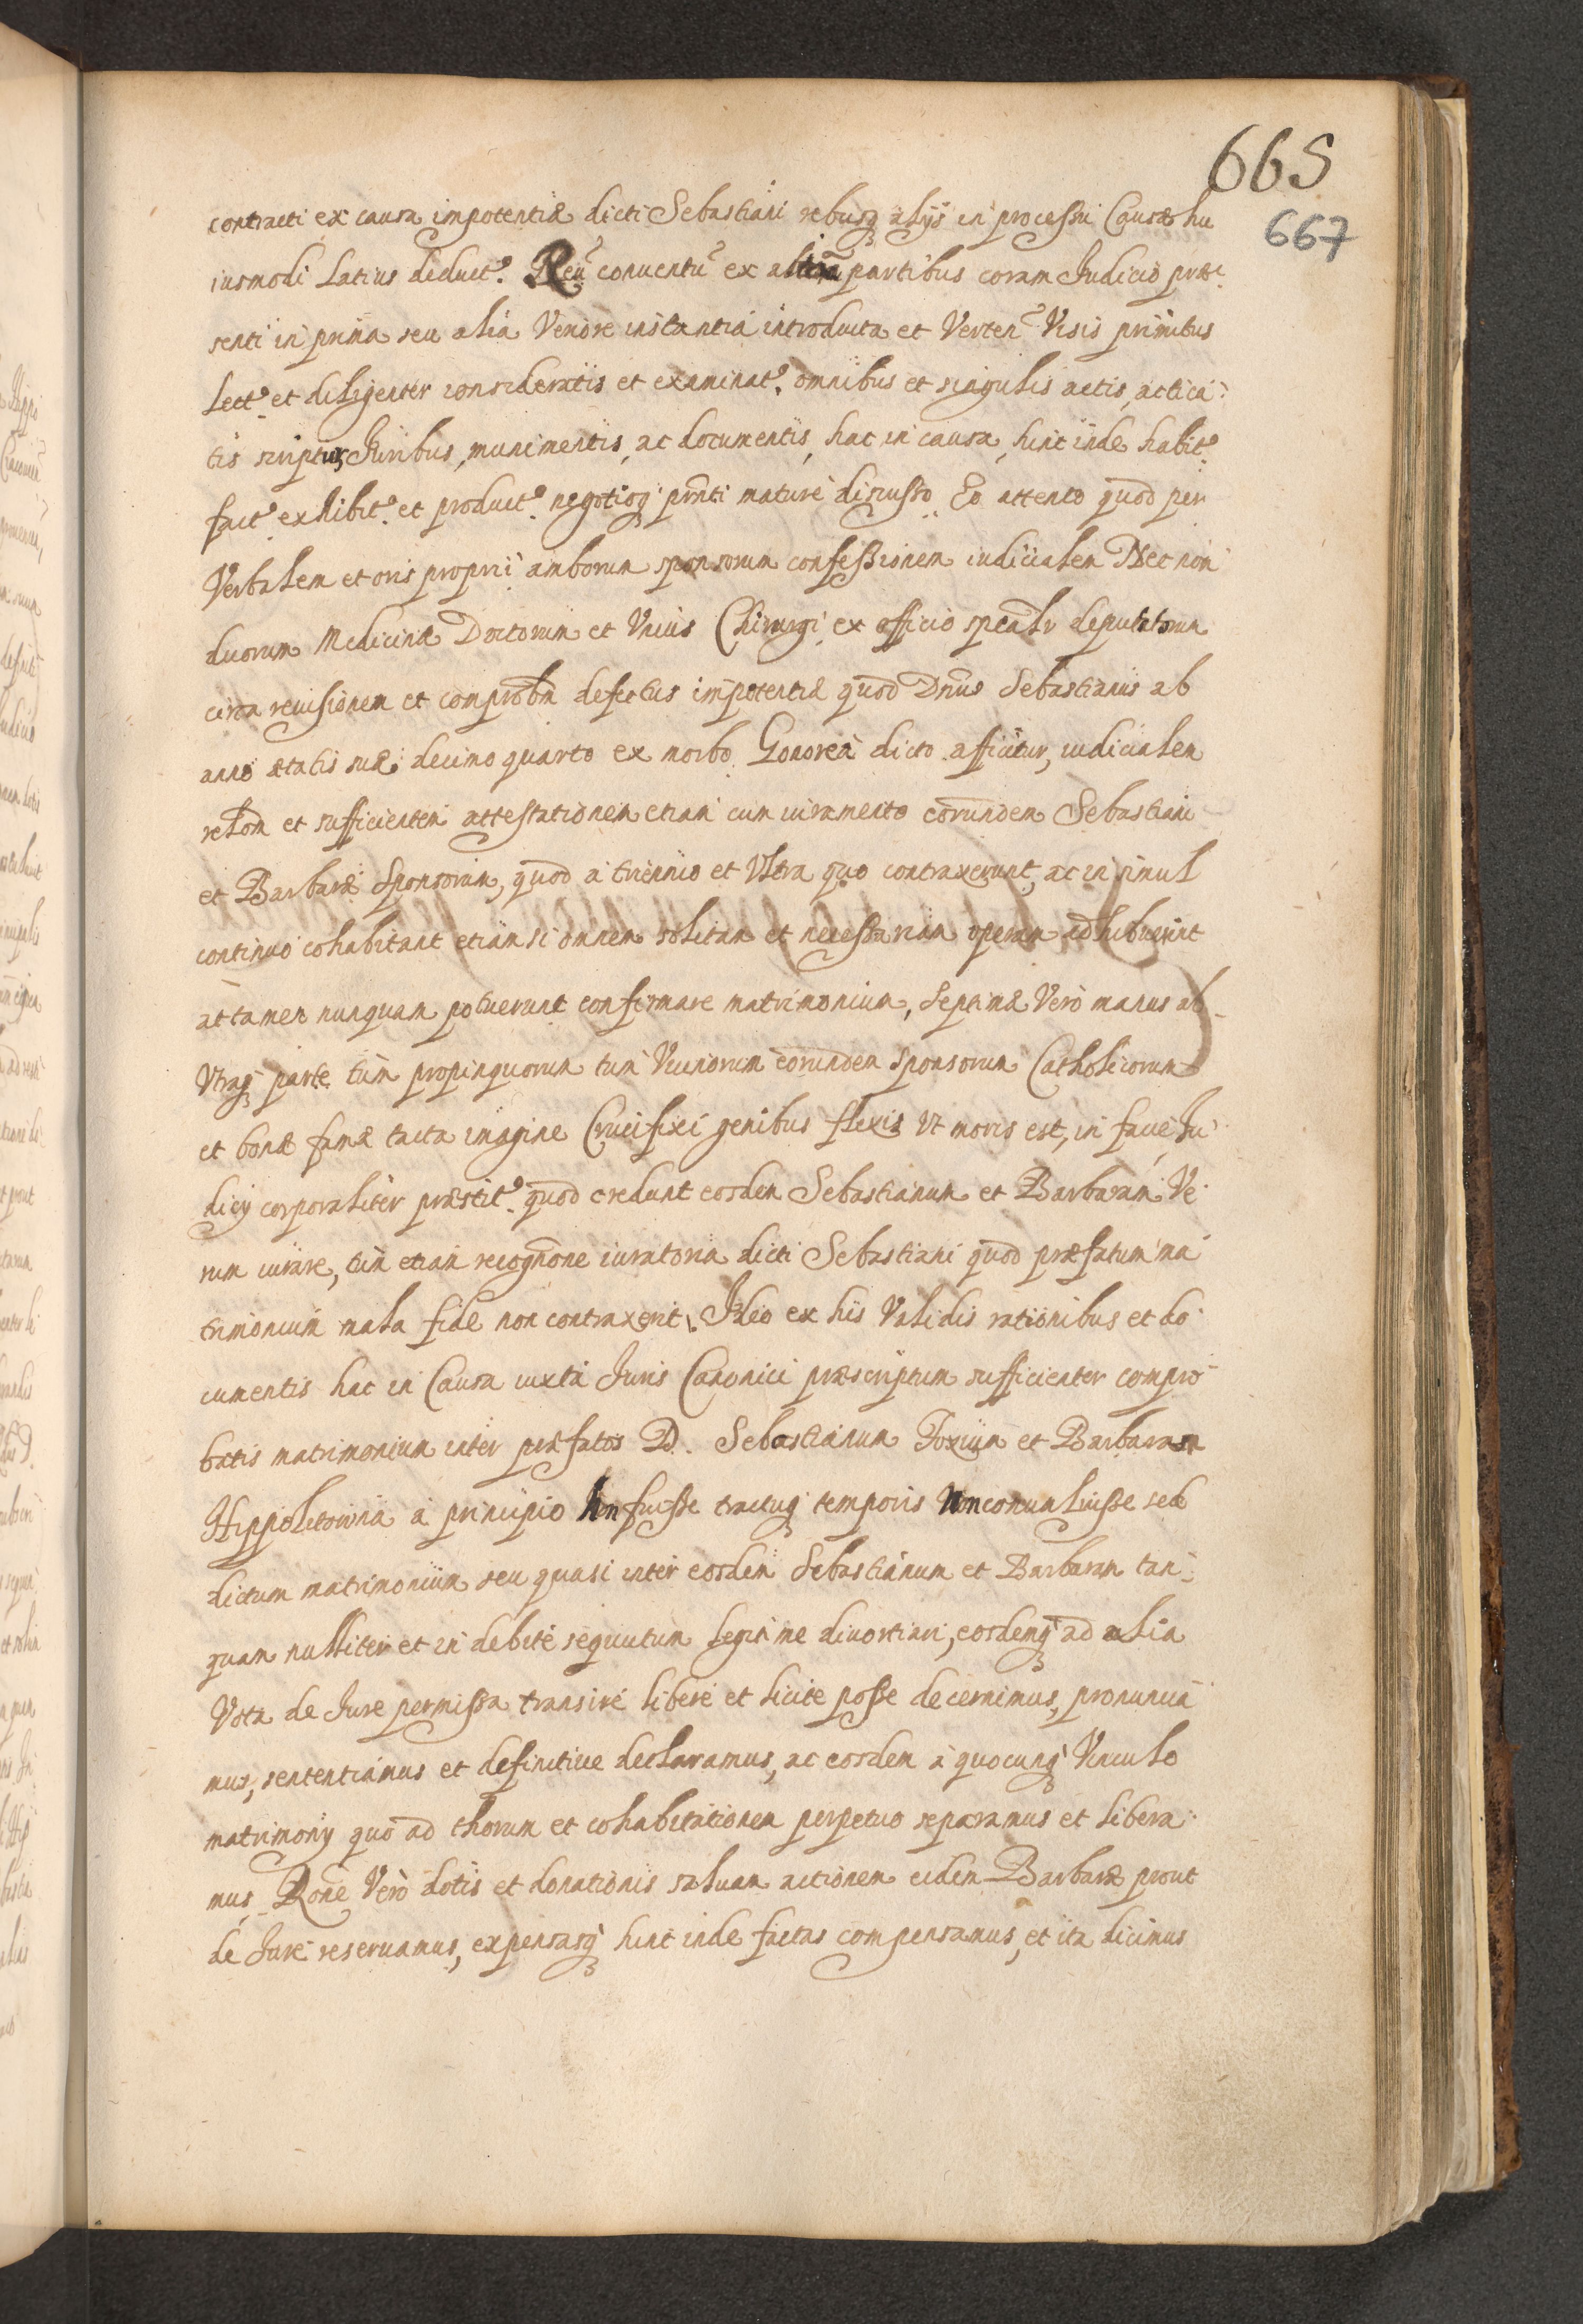 665
667
contracti ex causa impotentiæ dicti Sebastiani rebusq alijs in processu Causæ hu
iusmodi Latius deduct. Reu conuentu ex partibus coram Judicio præ
senti in prima seu alia Veriore instantia introducta et Verten Visis primitus
Lect. et diligenter consideratis et examinat. omnibus et singulis actis, actica:
tis scriptur, Juribus, munimentis, ac documentis, hac in causa, hinc inde habit.
fact. exhibit. et product. negotioq prnti maturè discusso. Eo attento quod per
Verbalem et oris proprii amborum sponsorum confessionem iudicialem Nec non
duorum Medicinæ Doctorum et Vnius Chirurgi ex officio spealr deputatorum
circa reuisionem et comprobm defectus impotentiæ quod Dnus Sebastianus ab
anno ætatis suæ decimo quarto ex morbo Gonorea dicto afficitur, iudicialem
relom et sufficientem attestationem etiam cum iuramento eorundem Sebastiani
et Barbaræ Sponsorum, quod a triennio et Vltra quo contraxerunt, ac in simul
continuo cohabitant etiamsi omnem solitam et necessariam operam adhibuerint
attamen nunquam potuerunt confirmare matrimonium, Septimæ Verò manus ab
Vtraq parte tùm propinquorum tùm Vicinorum eorundem Sponsorum Catholicorum
et bonæ famæ tacta imagine Crucifixi genibus flexis Vt moris est, in facie Ju
dicij corporaliter præstit. quod credunt eosdem Sebastianum et Barbaram Ve
rum iurare, tùm etiam recognone iuratoria dicti Sebastiani quod præfatum ma
trimonium mala fide non contraxerit. Ideo ex his Validis rationibus et do
cumentis hac in Causa iuxta Juris Canonici præscriptum sufficienter compro
batis matrimonium inter præfatos D. Sebastianum Toxium et Barbaram
Hippolitowna à principio Non fuisse tractuq temporis Non conualuisse sed
dictum matrimonium seu quasi inter eosdem Sebastianum et Barbaram tan:
quam nulliter et in debitè sequutum legitime diuortiari, eosdemq ad alia
Vota de Jure permissa transire liberè et licitè posse decernimus, pronuncia
mus, sententiamus et definitiue declaramus, ac eosdem à quocunq Vinculo
matrimonij quo ad thorum et cohabitationem perpetuo separamus et libera
mus, Rone Verò dotis et donationis saluam actionem eidem Barbaræ prout
de Jure reseruamus, expensasq hinc inde factas compensamus, et ita dicimus